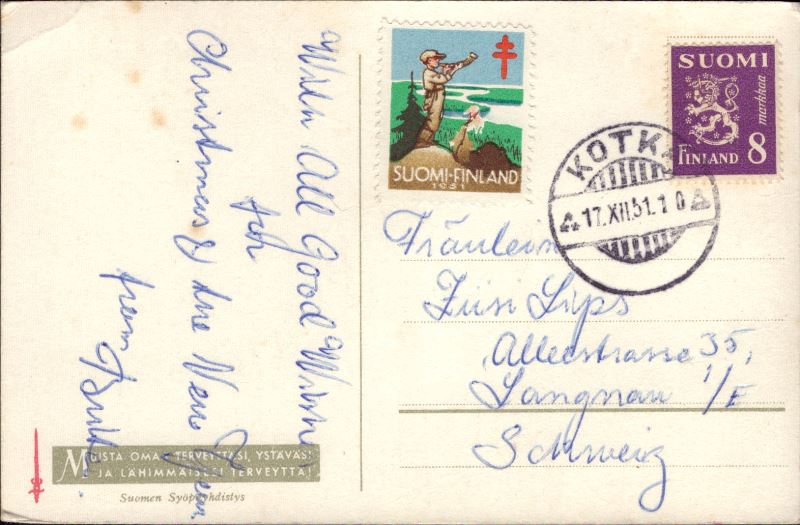 With All Good Wishes
for
Christmas & the New Year
from
SUOMI-FINLAND
1951
SUOMI
markkaa
FINLAND 8
KOTKA
17.XII.51.10
Fräulein
Züsi Lips
Alleestrasse 35,
Langnau i/E
Schweiz
MUISTA OMAA TERVEYTTÄSI, YSTÄVÄSI
JA LÄHIMMÄISESI TERVEYTTÄ!
Suomen Syöpäyhdistys